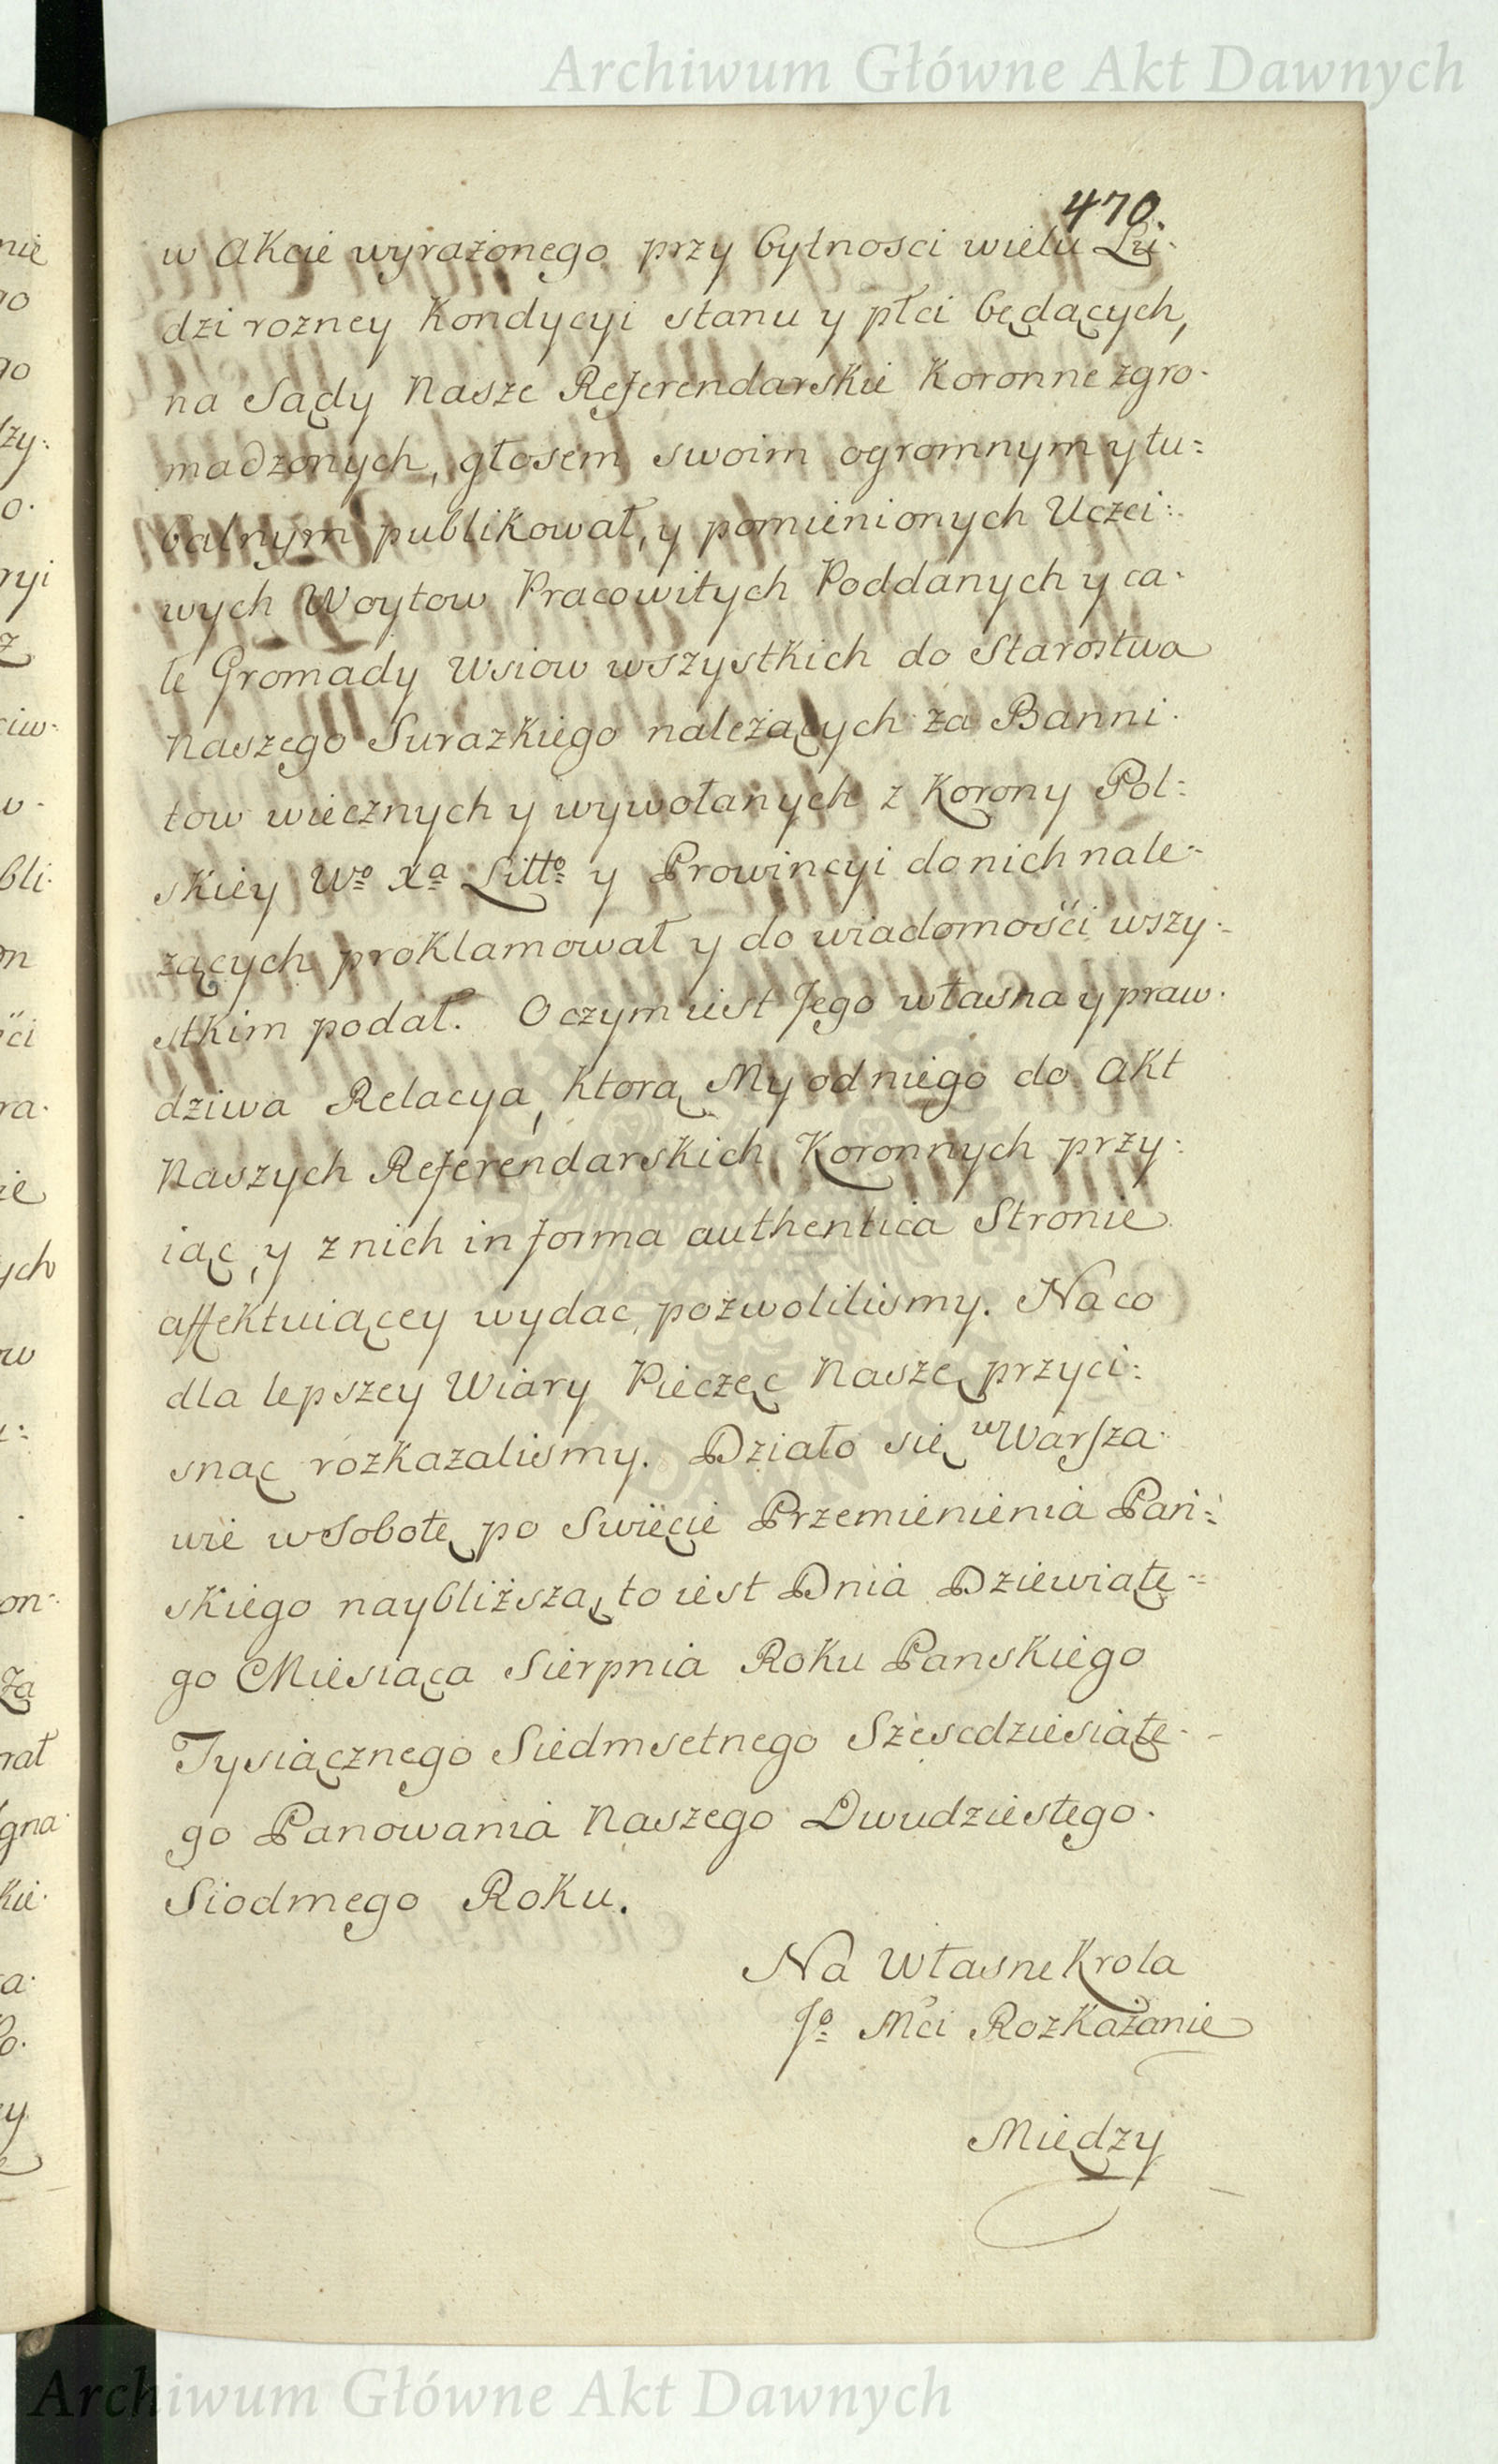 Archiwum Główne Akt Dawnych
470.
w Akcie wyrażonego przy bytnosci wielu Lu-
dzi rozney Kondycyi stanu y płci będących,
na Sądy Nasze Referendarskie Koronne zgro-
madzonych, głosem swoim ogromnym y tu=
balnym publikował, y pomienionych Uczci=
wych Woytow Pracowitych Poddanych y ca-
łe Gromady Wsiow wszystkich do Starostwa
Naszego Surazkiego należących za Banni-
tow wiecznych y wywołanych z Korony Pol=
skiey Wo Xa Litto y Prowincyi do nich nale-
żących proklamował y do wiadomości wszy-
stkim podał. O czym iest Jego własna y praw-
dziwa Relacya, ktorą My od niego do Akt
Naszych Referendarskich Koronnych przy-
iąc, y z nich in forma authentica Stronie
affektuiącey wydac pozwolilismy. Na co
dla lepszey Wiary Pieczęc Naszę przyci=
snąc rozkazalismy. Działo się w Warszа-
wie w Sobotę po Swięcie Przemienienia Pań=
skiego naybliższą, to iest Dnia Dziewiąte-
go Miesiąca Sierpnia Roku Panskiego
Tysiącznego Siedmsetnego Szescdziesiąte-
go Panowania Naszego Dwudziestego
Siodmego Roku.
Na Własne Krola
Jo Mci Rozkazanie
Między
nie
go
zy-
o.
ryi
z
ciw-
w-
bli-
on
ści
ra-
ie
ych
ow
on-
Za
rał
gna
kie-
a-
Po-
ey
Archiwum Główne Akt Dawnych